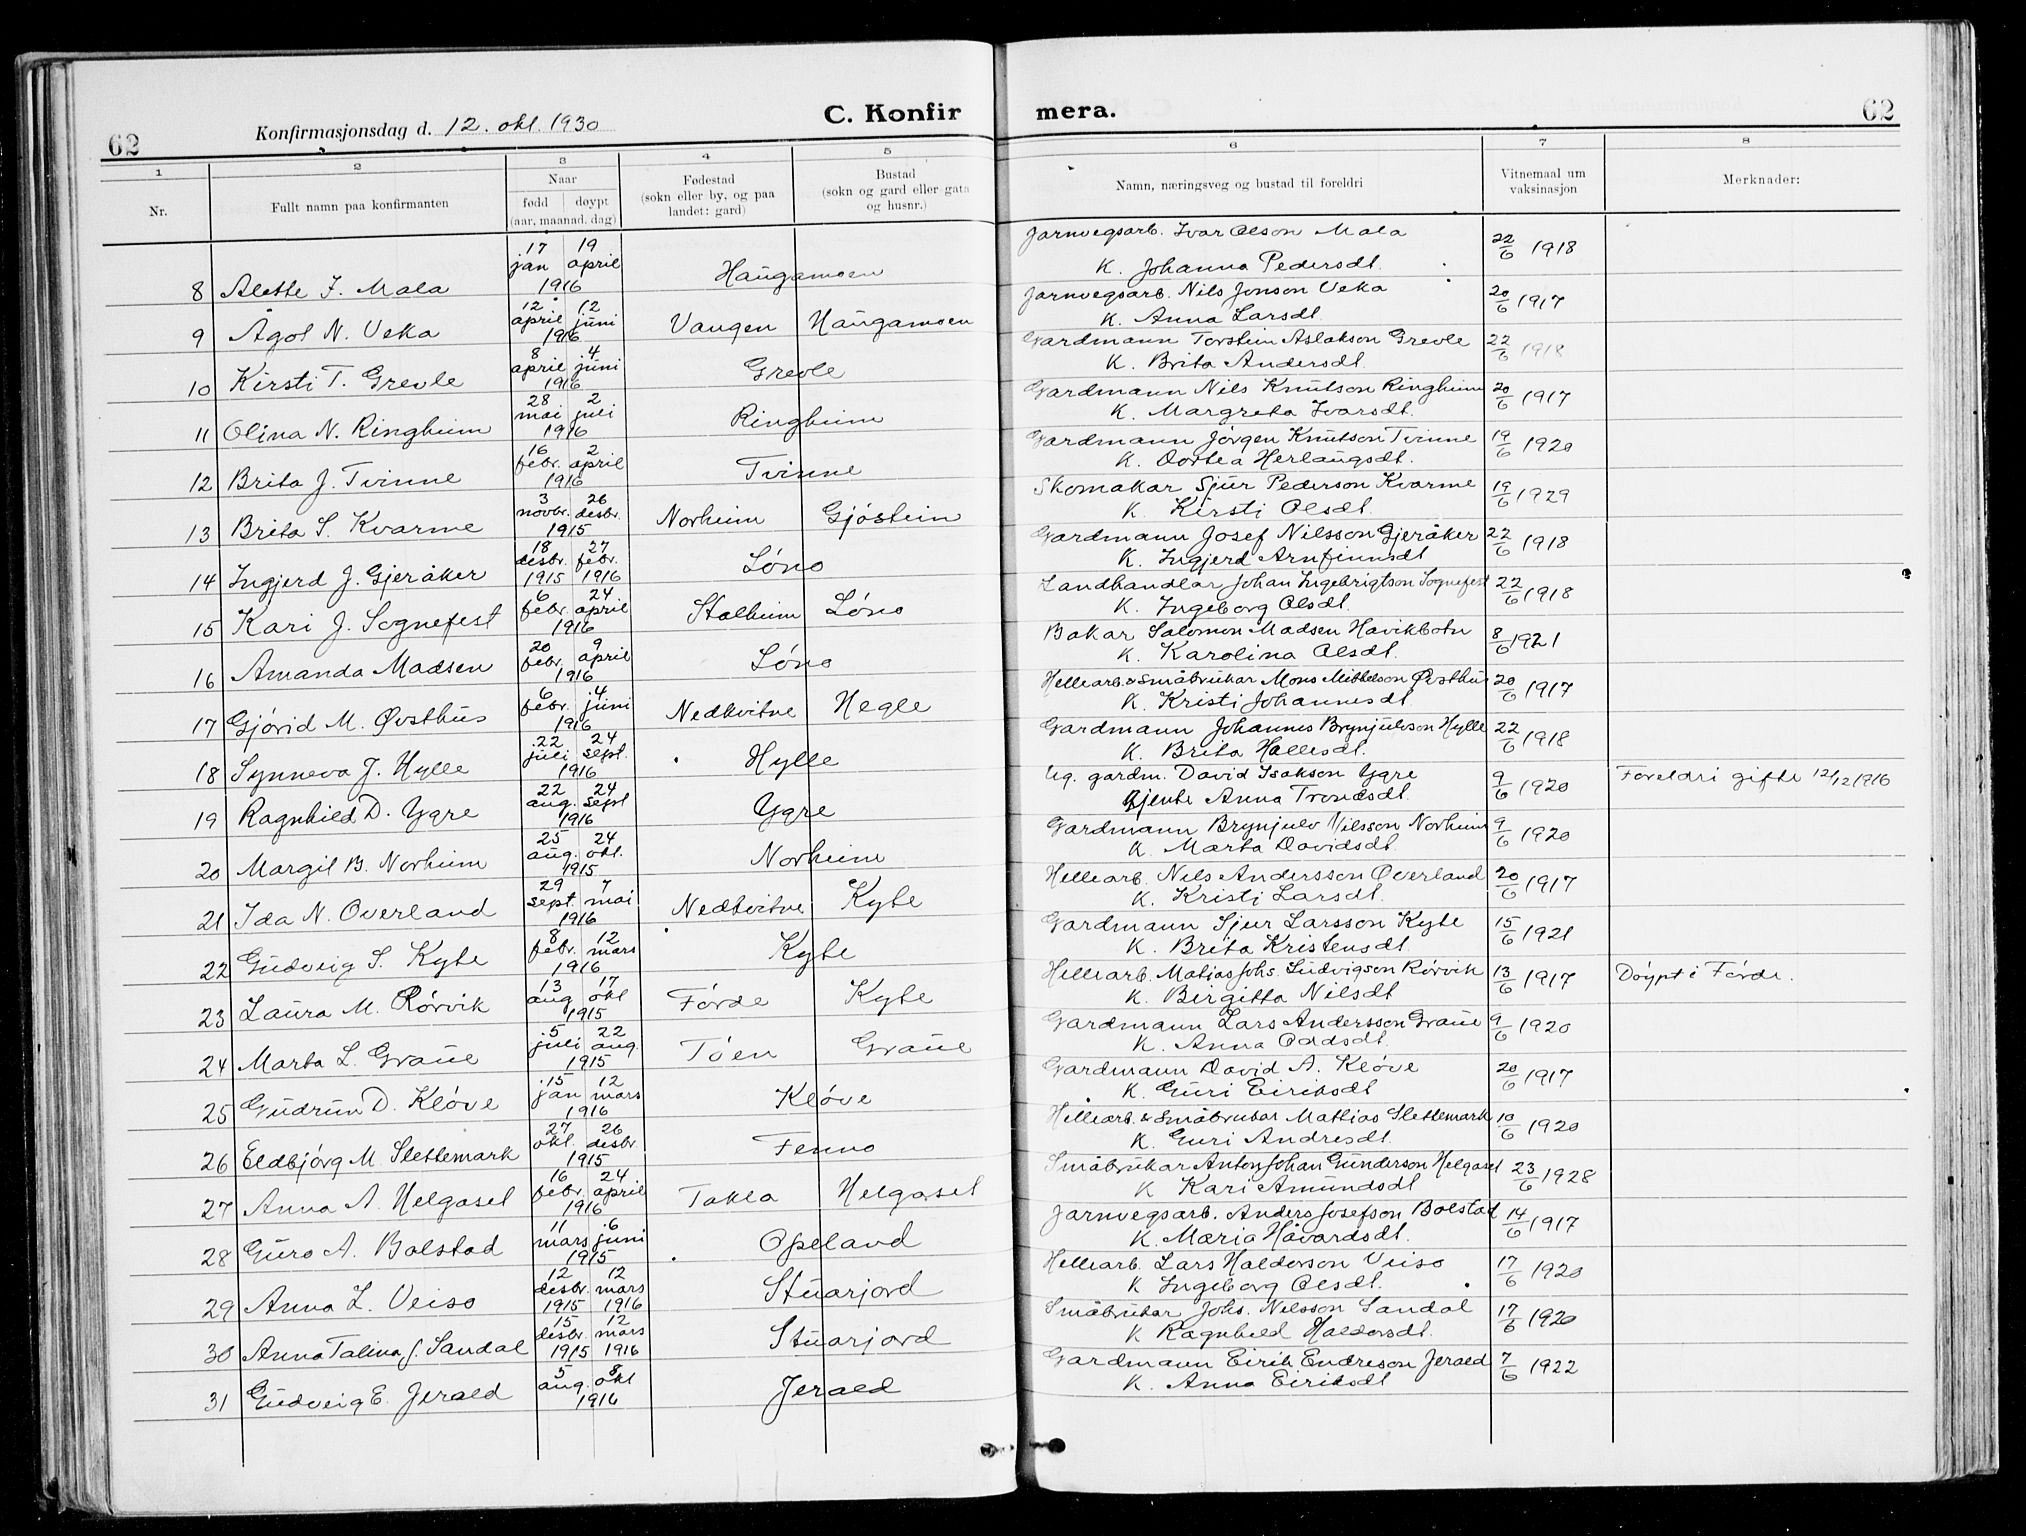 62
Konfirmasjonsdag d. 12. okt. 1930
C. Konfir
mera.
62
1 2 3 4 5 6 7 8
Nr.
Fullt namn paa konfirmanten
Naar
fødd døypt
(aar, maanad, dag)
Fødestad
(sokn eller by, og paa
landet: gard)
Bustad
(sokn og gard eller gata
og husnr.)
Namn, næringsveg og bustad til foreldri
Vitnemaal um
vaksinasjon
Merknader:
8 Alette I. Mala 17 jan 19 april 1916 Haugamoen Jarnvegsarb. Ivar Olson Mala K. Johanna Pedersdt. 22/6 1918
9 Ågot N. Veka 12 april 12 juni 1916 Vangen Haugamoen Jarnvegsarb. Nils Jonson Veka K. Anna Larsdt. 20/6 1917
10 Kirsti T. Grevle 8 april 4 juni 1916 Grevle Gardmann Torstein Aslakson Grevle K. Brita Andersdt. 22/6 1918
11 Olina N. Ringheim 28 mai 2 juli 1916 Ringheim Gardmann Nils Knutson Ringheim K. Margreta Ivarsdt. 20/6 1917
12 Brita J. Tvinne 16 febr. 2 april 1916 Tvinne Gardmann Jørgen Knutson Tvinne K. Dortea Herlaugsdt. 19/6 1920
13 Brita S. Kvarme 3 novbr. 26 desbr. 1915 Norheim Gjøstein Skomakar Sjur Pederson Kvarme K. Kirsti Olsdt. 19/6 1929
14 Ingjerd J. Gjeråker 18 desbr. 1915 27 febr. 1916 Løno Gardmann Josef Nilsson Gjeråker K. Ingjerd Arnfinnsdt 22/6 1918
15 Kari J. Sognefest 6 febr. 24 april 1916 Stalheim Løno Landhandlar Johan Ingebrigtson Sognefest K. Ingeborg Olsdt. 22/6 1918
16 Amanda Madsen 20 febr. 9 april 1916 Løno Bakar Salomon Madsen Havikbotn K. Karolina Olsdt. 8/6 1921
17 Gjørid M. Øvsthus 6 febr. 4 juni 1916 Nedkvitne Hegle Hellearb. & småbrukar Mons Mikkelson Øvsthus K. Kristi Johannesdt 20/6 1917
18 Synneva J. Hylle 22 juli 24 sept. 1916 Hylle Gardmann Johannes Brynjulvson Hylle K. Brita Hallesdt. 22/6 1918
19 Ragnhild D. Ygre 22 aug. 24 sept 1916 Ygre Ug. gardm. David Isakson Ygre Gjente Anna Trondsdt. 9/6 1920 Foreldri gifte 12/12 1916
20 Margit B. Norheim 25 aug. 24 okt. 1915 Norheim Gardmann Brynjulv Nilsson Norheim K. Marta Davidsdt. 9/6 1920
21 Ida N. Overland 29 sept. 7 mai 1916 Nedkvitne Kyte Hellearb. Nils Andersson Overland K. Kristi Larsdt. 20/6 1917
22 Gudveig S. Kyte 8 febr. 12 mars 1916 Kyte Gardmann Sjur Larsson Kyte K. Brita Kristensdt 15/6 1921
23 Laura M. Rørvik 13 aug. 17 okt 1915 Førde Kyte Hellearb. Matias Johs. Ludvigson Rørvik K. Birgitta Nilsdt 13/6 1917 Døypt i Førde.
24 Marta L. Graue 5 juli 22 aug. 1915 Tøen Graue Gardmann Lars Andersson Graue K. Anna Oddsdt. 9/6 1920
25 Gudrun D. Kløve 15 jan 12 mars 1916 Kløve Gardmann David A. Kløve K. Guri Eiriksdt 20/6 1917
26 Eldbjørg M. Slettemark 27 okt. 26 desbr. 1915 Fenno Hellearb. & småbrukar Mathias Slettemark K. Guri Andresdt. 10/6 1920
27 Anna A. Helgaset 16 febr. 24 april 1916 Takla Helgaset Småbrukar Anton Johan Gunderson Helgaset K Kari Amundsdt 23/6 1928
28 Guro A. Bolstad 11 mars 6 juni 1915 Opeland Jarnvegsarb. Anders Josefson Bolstad K. Maria Håvardsdt. 14/6 1917
29 Anna L. Veiso 12 desbr. 1915 12 mars 1916 Stuarjord Hellearb. Lars Halderson Veiso K Ingeborg Olsdt. 17/6 1920
30 Anna Talina J. Sandal 15 desbr. 1915 12 mars 1916 Stuarjord Småbrukar Johs. Nilsson Sandal K Ragnhild Haldorsdt. 17/6 1920
31 Gudveig E. Jerald 5 aug. 8 okt 1916 Jerald Gardmann Eirik Endreson Jerald K. Anna Eiriksdt 7/6 1922